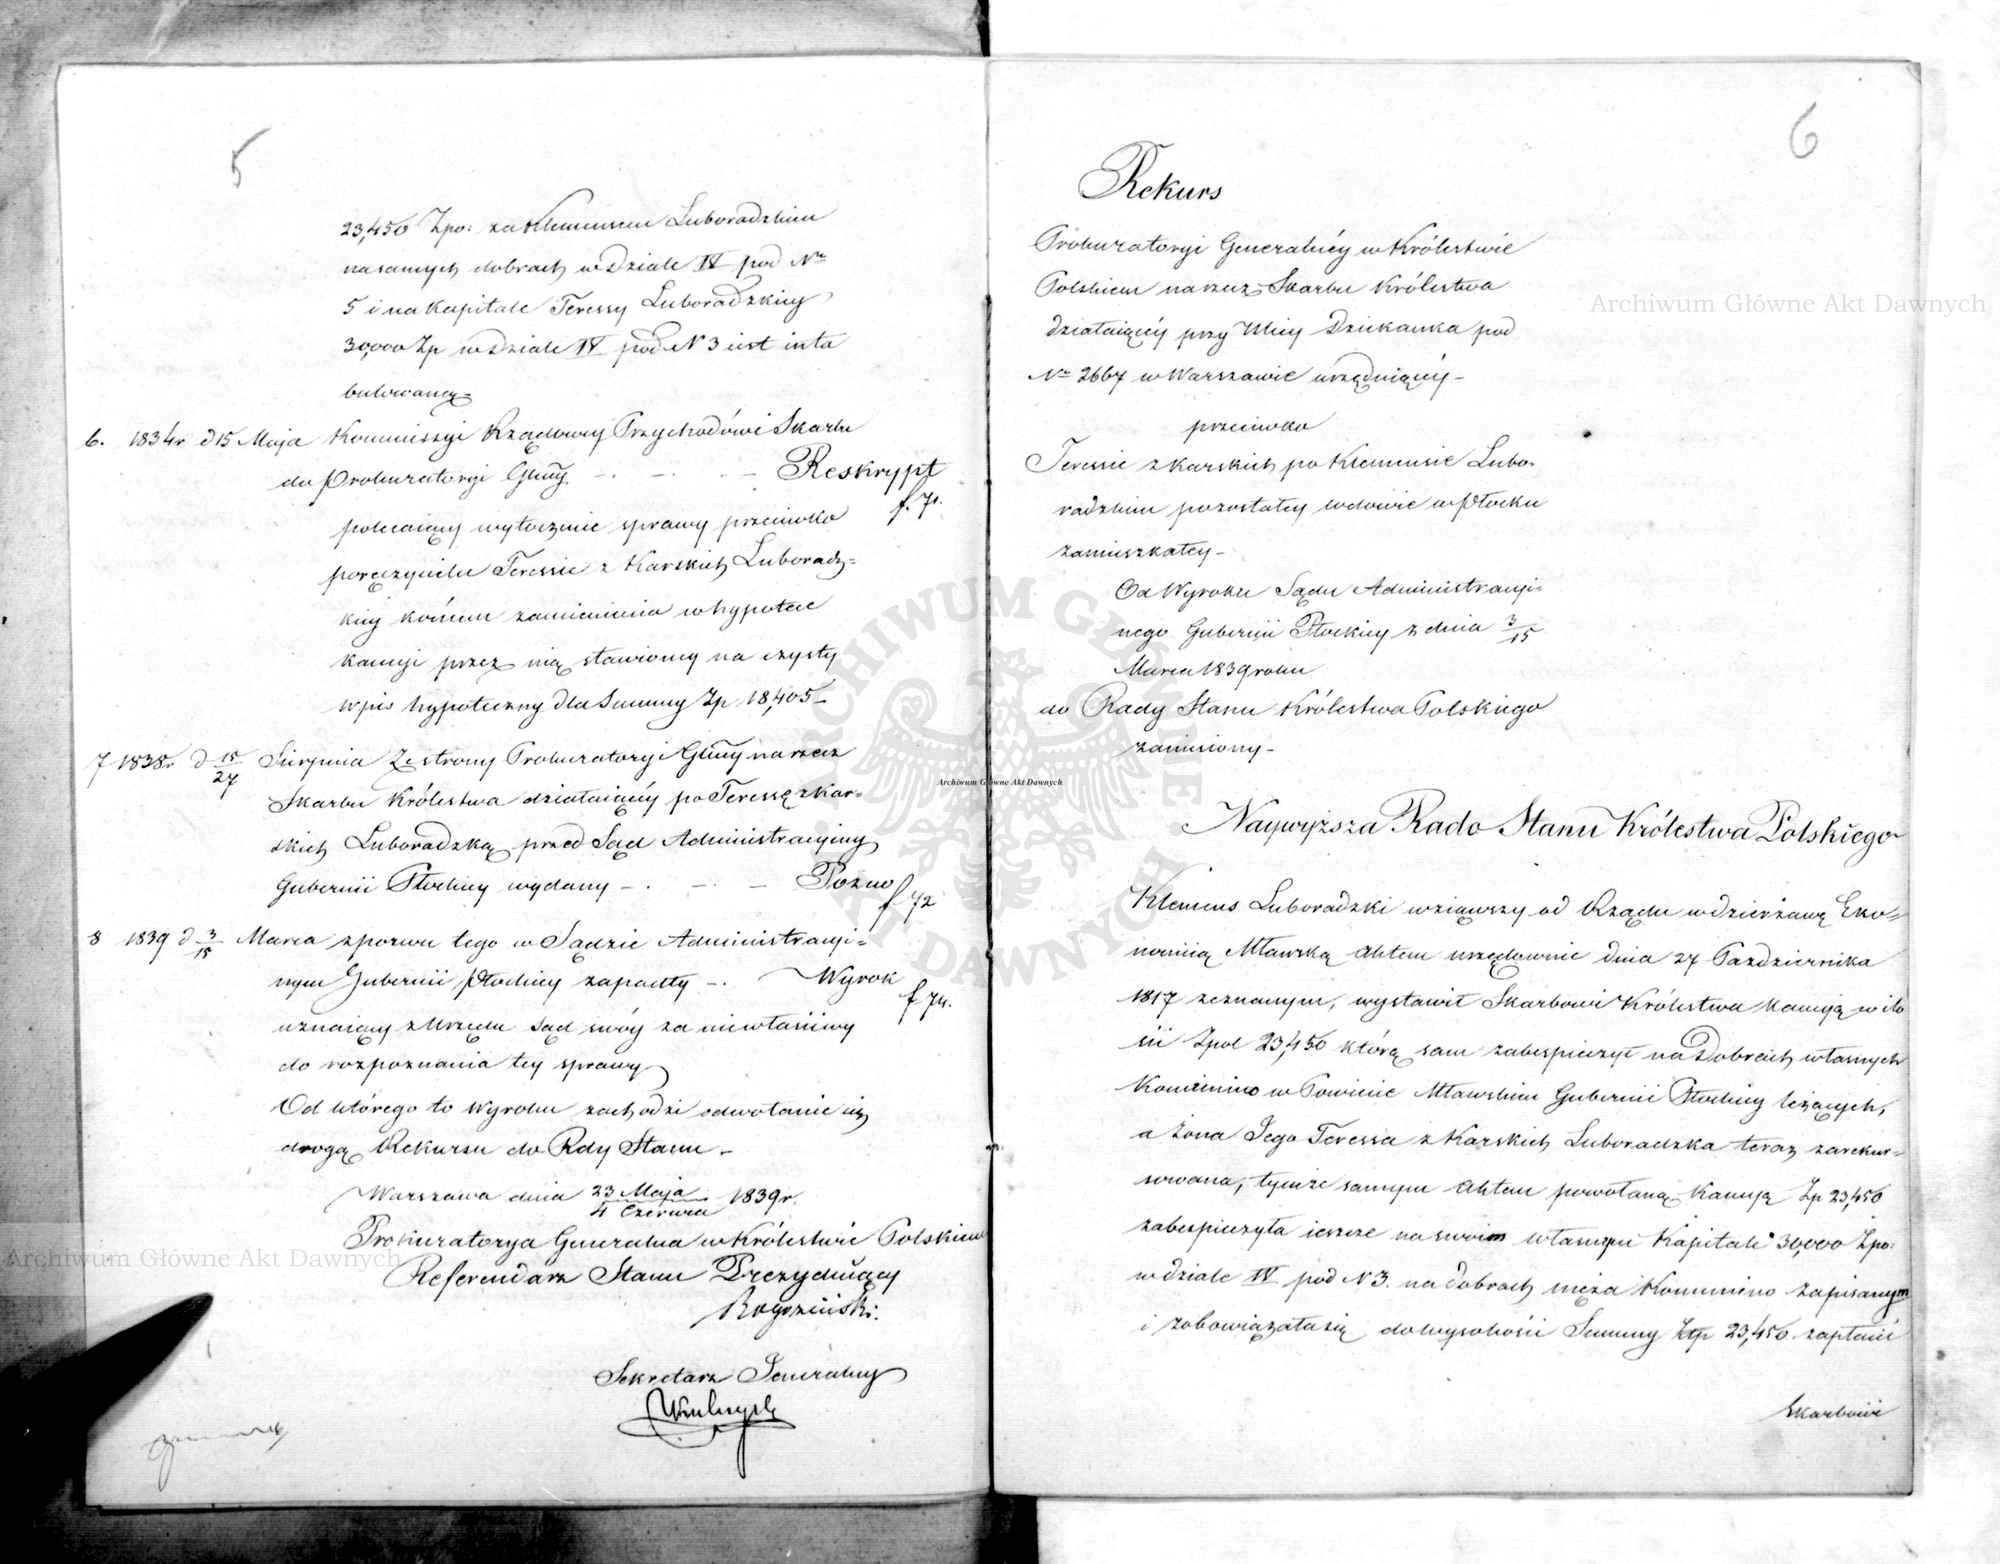 5
23,450 Zpo: za Klemensem Luboradzkim
na samych dobrach w Dziale IV pod Nr
5 i na Kapitale Teressy Luboradzkiey
30,000 Zp w Dziale IV pod N 3 iest inta
bulowaną
6. 1834r d 15 Maja Kommissyi Rządowey Przychodów i Skarbu
do Prokuratoryi Głney - . - . - Reskrypt
f. 71.
polecaiący wytoczenie sprawy przeciwko
poręczycielce Teressie z Karskich Luboradz=
kiey końcem zamienienia w hypotece
kaucyi przez nią stawioney na czysty
wpis hypoteczny dla Summy Zp 18,405 -
7 1838r d 15/27 Sierpnia Ze strony Prokuratoryi Głney na rzecz
Skarbu Królestwa działaiącéy po Teressę z Kar=
skich Luboradzką przed Sąd Administracyiny
Gubernii Płockiey wydany - . - . - Pozew
f 72
8 1839 d 3/15 Marca z pozwu tego w Sądzie Administracyi=
nym Gubernii Płockiey zapadły - . Wyrok
f 74.
uznaiący z Urzędu Sąd swóy za niewłaściwy
do rozpoznania tey sprawy
Od którego to Wyroku zachodzi odwołanie się
drogą Rekursu do Rdy Stanu -
Warszawa dnia 23 Maja/4 Czerwca 1839r.
Prokuratorya Generalna w Królestwie Polskiem
Referendarz Stanu Prezyduiący
Sekretarz Generalny
6
Rekurs
Prokuratoryi Generalnéy w Królestwie
Polskiem na rzecz Skarbu Królestwa
działaiącéy przy Ulicy Dziekanka pod
Nr 2667 w Warszawie urzęduiącéy -
przeciwko
Teressie z Karskich po Klemensie Lubo=
radzkim pozostałey wdowie w Płocku
zamieszkałey -
Od Wyroku Sądu Administracyi=
nego Gubernii Płockiey z dnia 3/15
Marca 1839 roku
do Rady Stanu Królestwa Polskiego
zaniesiony -
Naywyższa Rado Stanu Królestwa Polskiego
Klemens Luboradzki wziąwszy od Rządu w dzierżawę Eko=
nomiią Mławską Aktem urzędownie dnia 27 Października
1817 zeznanym, wystawił Skarbowi Królestwa Kaucyą w ilo
ści Zpol 23,450 którą sam zabespieczył na Dobrach własnych
w Powiecie Mławskim Gubernii Płockiey leżących,
a żona Jego Teressa z Karskich Luboradzka teraz zarekur=
sowana, tymże samym Aktem powołaną Kaucyą Zp 23,450
zabespieczyła iescze na swoim własnym Kapitale 30,000 Zpo:
w dziale IV pod N 3. na dobrach męża zapisanym
i zobowiązała się do wysokości Summy Złp 23,450. zapłacić
Skarbowi
Archiwum Główne Akt Dawnych
Archiwum Główne Akt Dawnych
Archiwum Główne Akt Dawnych
ARCHIWUM GŁÓWNE AKT DAWNYCH